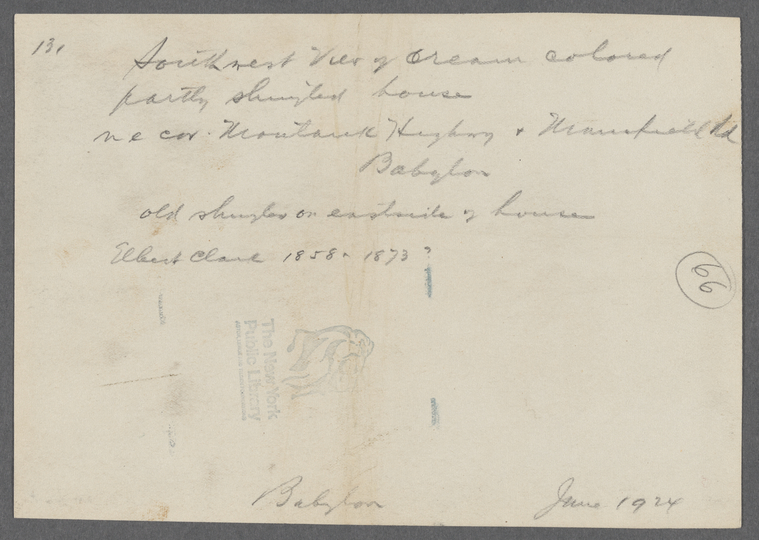 131
Southwest View of cream colored
partly shingled house
n e cor. Montauk Highwy + Mansfield Rd
Babylon
old shingles on eastside of house
Elbert Clark 1858 - 1873 ?
66
The New York
Public Library
Babylon
June 1924